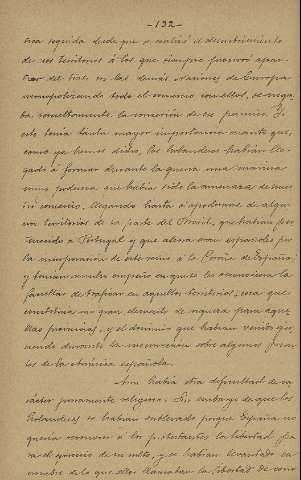 -132-
tica seguida desde que se realizó el descubrimiento
de sus territorios á los que siempre procuró apar-
tar del trato con las demás Naciones de Europa
monopolizando todo el comercio con ellos, se nega-
ba resueltamente la concesión de ese permiso. Y
esto tenia tanta mayor importancia cuanto que,
como ya hemos dicho, los holandeses habían lle-
gado á formar durante la guerra una marina
muy poderosa que había sido la amenaza de nues-
tro comercio, llegando hasta á apoderarse de algu-
nos territorios de la parte del Brasil, que habían per-
tenecido á Portugal y que ahora eran españoles por
la incorporación de este reino á la Corona de España,
y tenian empeño en que se les reconociera la
facultad de traficar en aquellos territorios, cosa que
constituia un gran elemento de riqueza para aque-
llas provincias, y el dominio que habían venido ejer-
ciendo durante la insurrección sobre algunos pun-
tos de la América española.
Aun había otra dificultad de ca-
rácter puramente religioso. Sin embargo de que los
holandeses se habían sublevado porque España no
queria conceder á los protestantes la libertad pa-
ra el ejercicio de su culto, y se habían levantado en
nombre de lo que ellos llamaban la libertad de con-